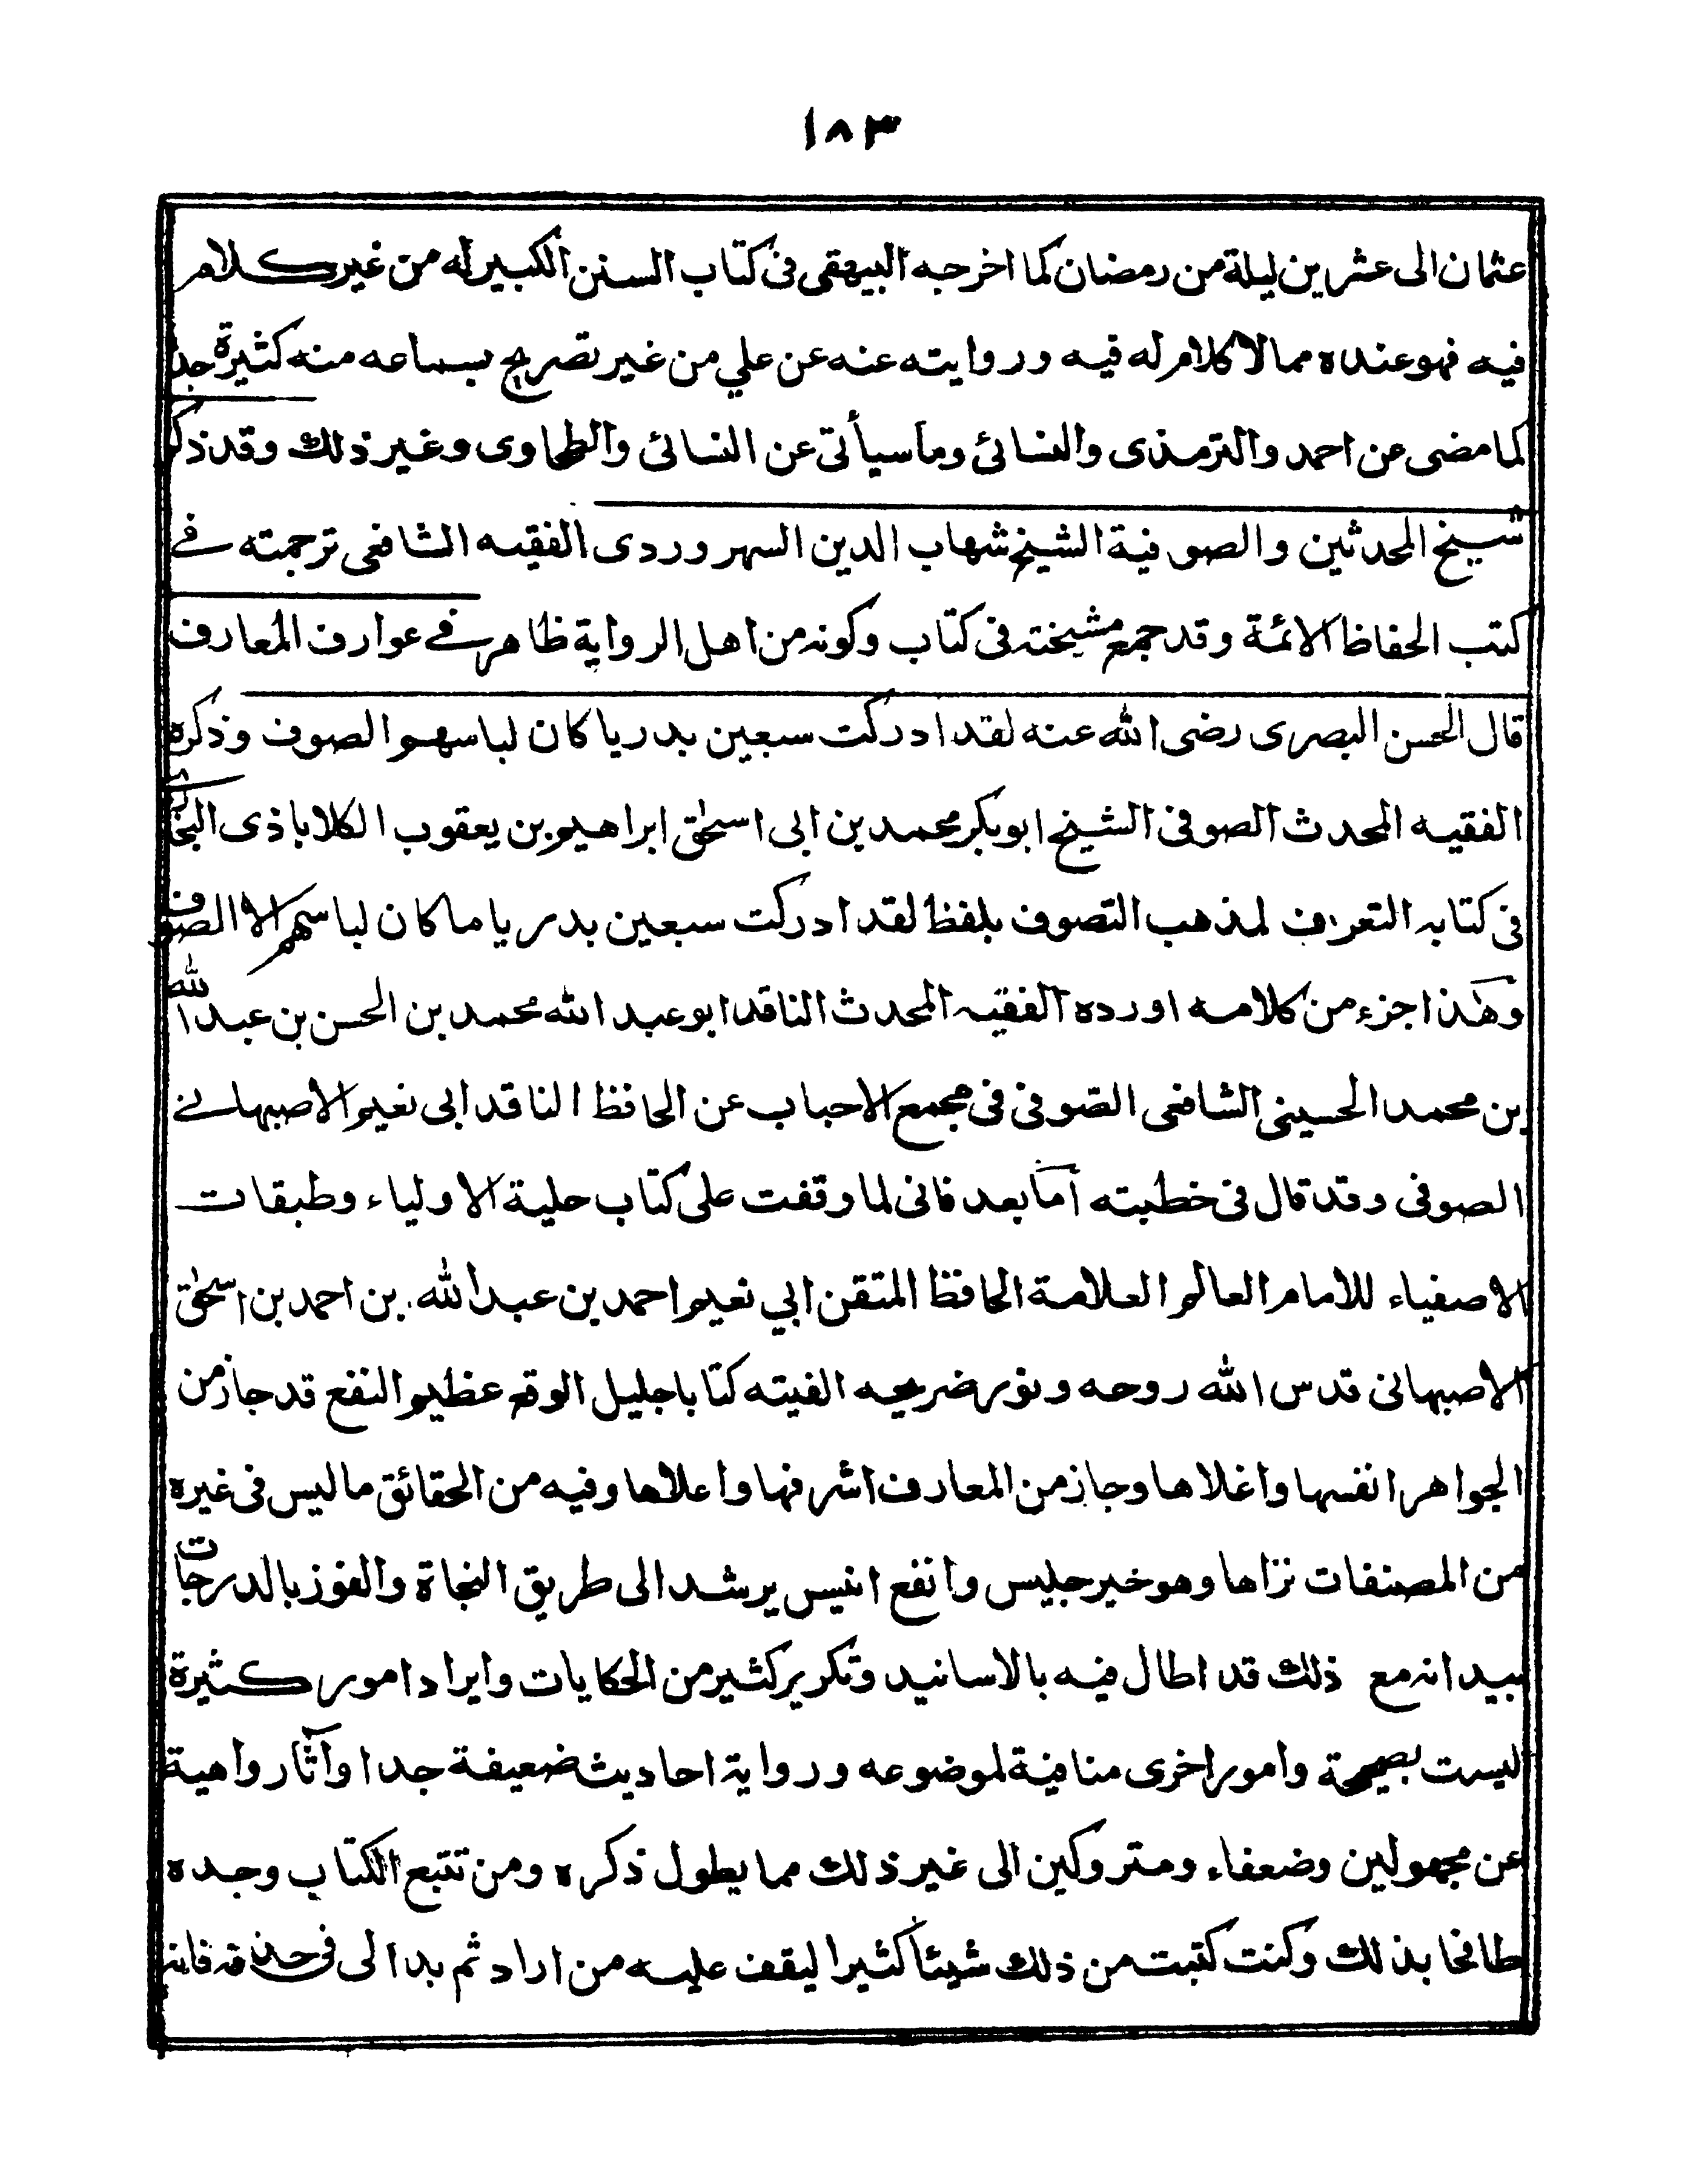 ١٨٣
عثمان الى عشرين ليلة من رمضان كما اخرجه البيهقى فى كتاب السنن الكبير له من غير كلام
فيه فهو عنده مما لا كلام له فيه وروايته عنه عن علي من غير تصريح بسماعه منه كثيرة جدا
كما مضى عن احمد والترمذى والنسائى وما سيأتى عن النسائى والطحاوى وغير ذلك وقد ذكر
شيخ المحدثين والصوفية الشيخ شهاب الدين السهروردى الفقيه الشافعى ترجمته فے
كتب الحفاظ الائمة وقد جمع مشيخته فى كتاب وكونه من اهل الرواية ظاهر فے عوارف المعارف
قال الحسن البصرى رضى الله عنه لقد ادركت سبعين بدريا كان لباسهم الصوف وذكره
الفقيه المحدث الصوفى الشيخ ابو بكر محمد بن ابى اسحٰق ابراهيم بن يعقوب الكلاباذى البخارى
فى كتابه التعرف لمذهب التصوف بلفظ لقد ادركت سبعين بدريا ما كان لباسهم الا الصوف
وهٰذا جزء من كلامه اورده الفقيه المحدث الناقد ابو عبد الله محمد بن الحسن بن عبد الله
بن محمد الحسينى الشافعى الصوفى فى مجمع الاحباب عن الحافظ الناقد ابى نعيم الاصبهانے
الصوفى وقد قال فى خطبته أما بعد فانى لما وقفت على كتاب حلية الاولياء وطبقات
الاصفياء للامام العالم العلامة الحافظ المتقن ابي نعيم احمد بن عبد الله بن احمد بن اسحٰق
الاصبهانى قدس الله روحه ونور ضريحه الفيته كتابا جليل الوقع عظيم النفع قد حاز من
الجواهر انفسها واغلاها وجاز من المعارف اشرفها واعلاها وفيه من الحقائق ما ليس فى غيره
من المصنفات نزاها وهو خير جليس وانفع انيس يرشد الى طريق النجاة والفوز بالدرجات
بيد انه مع ذلك قد اطال فيه بالاسانيد وتكرير كثير من الحكايات وايراد امور كثيرة
ليست بصحيحة وامور اخرى منافية لموضوعه ورواية احاديث ضعيفة جدا وآثار واهية
عن مجهولين وضعفاء ومتروكين الى غير ذلك مما يطول ذكره ومن تتبع الكتاب وجده
طافحا بذلك وكنت كتبت من ذلك شيئا كثيرا ليقف عليه من اراد ثم بدا لى فى حذفه فانه